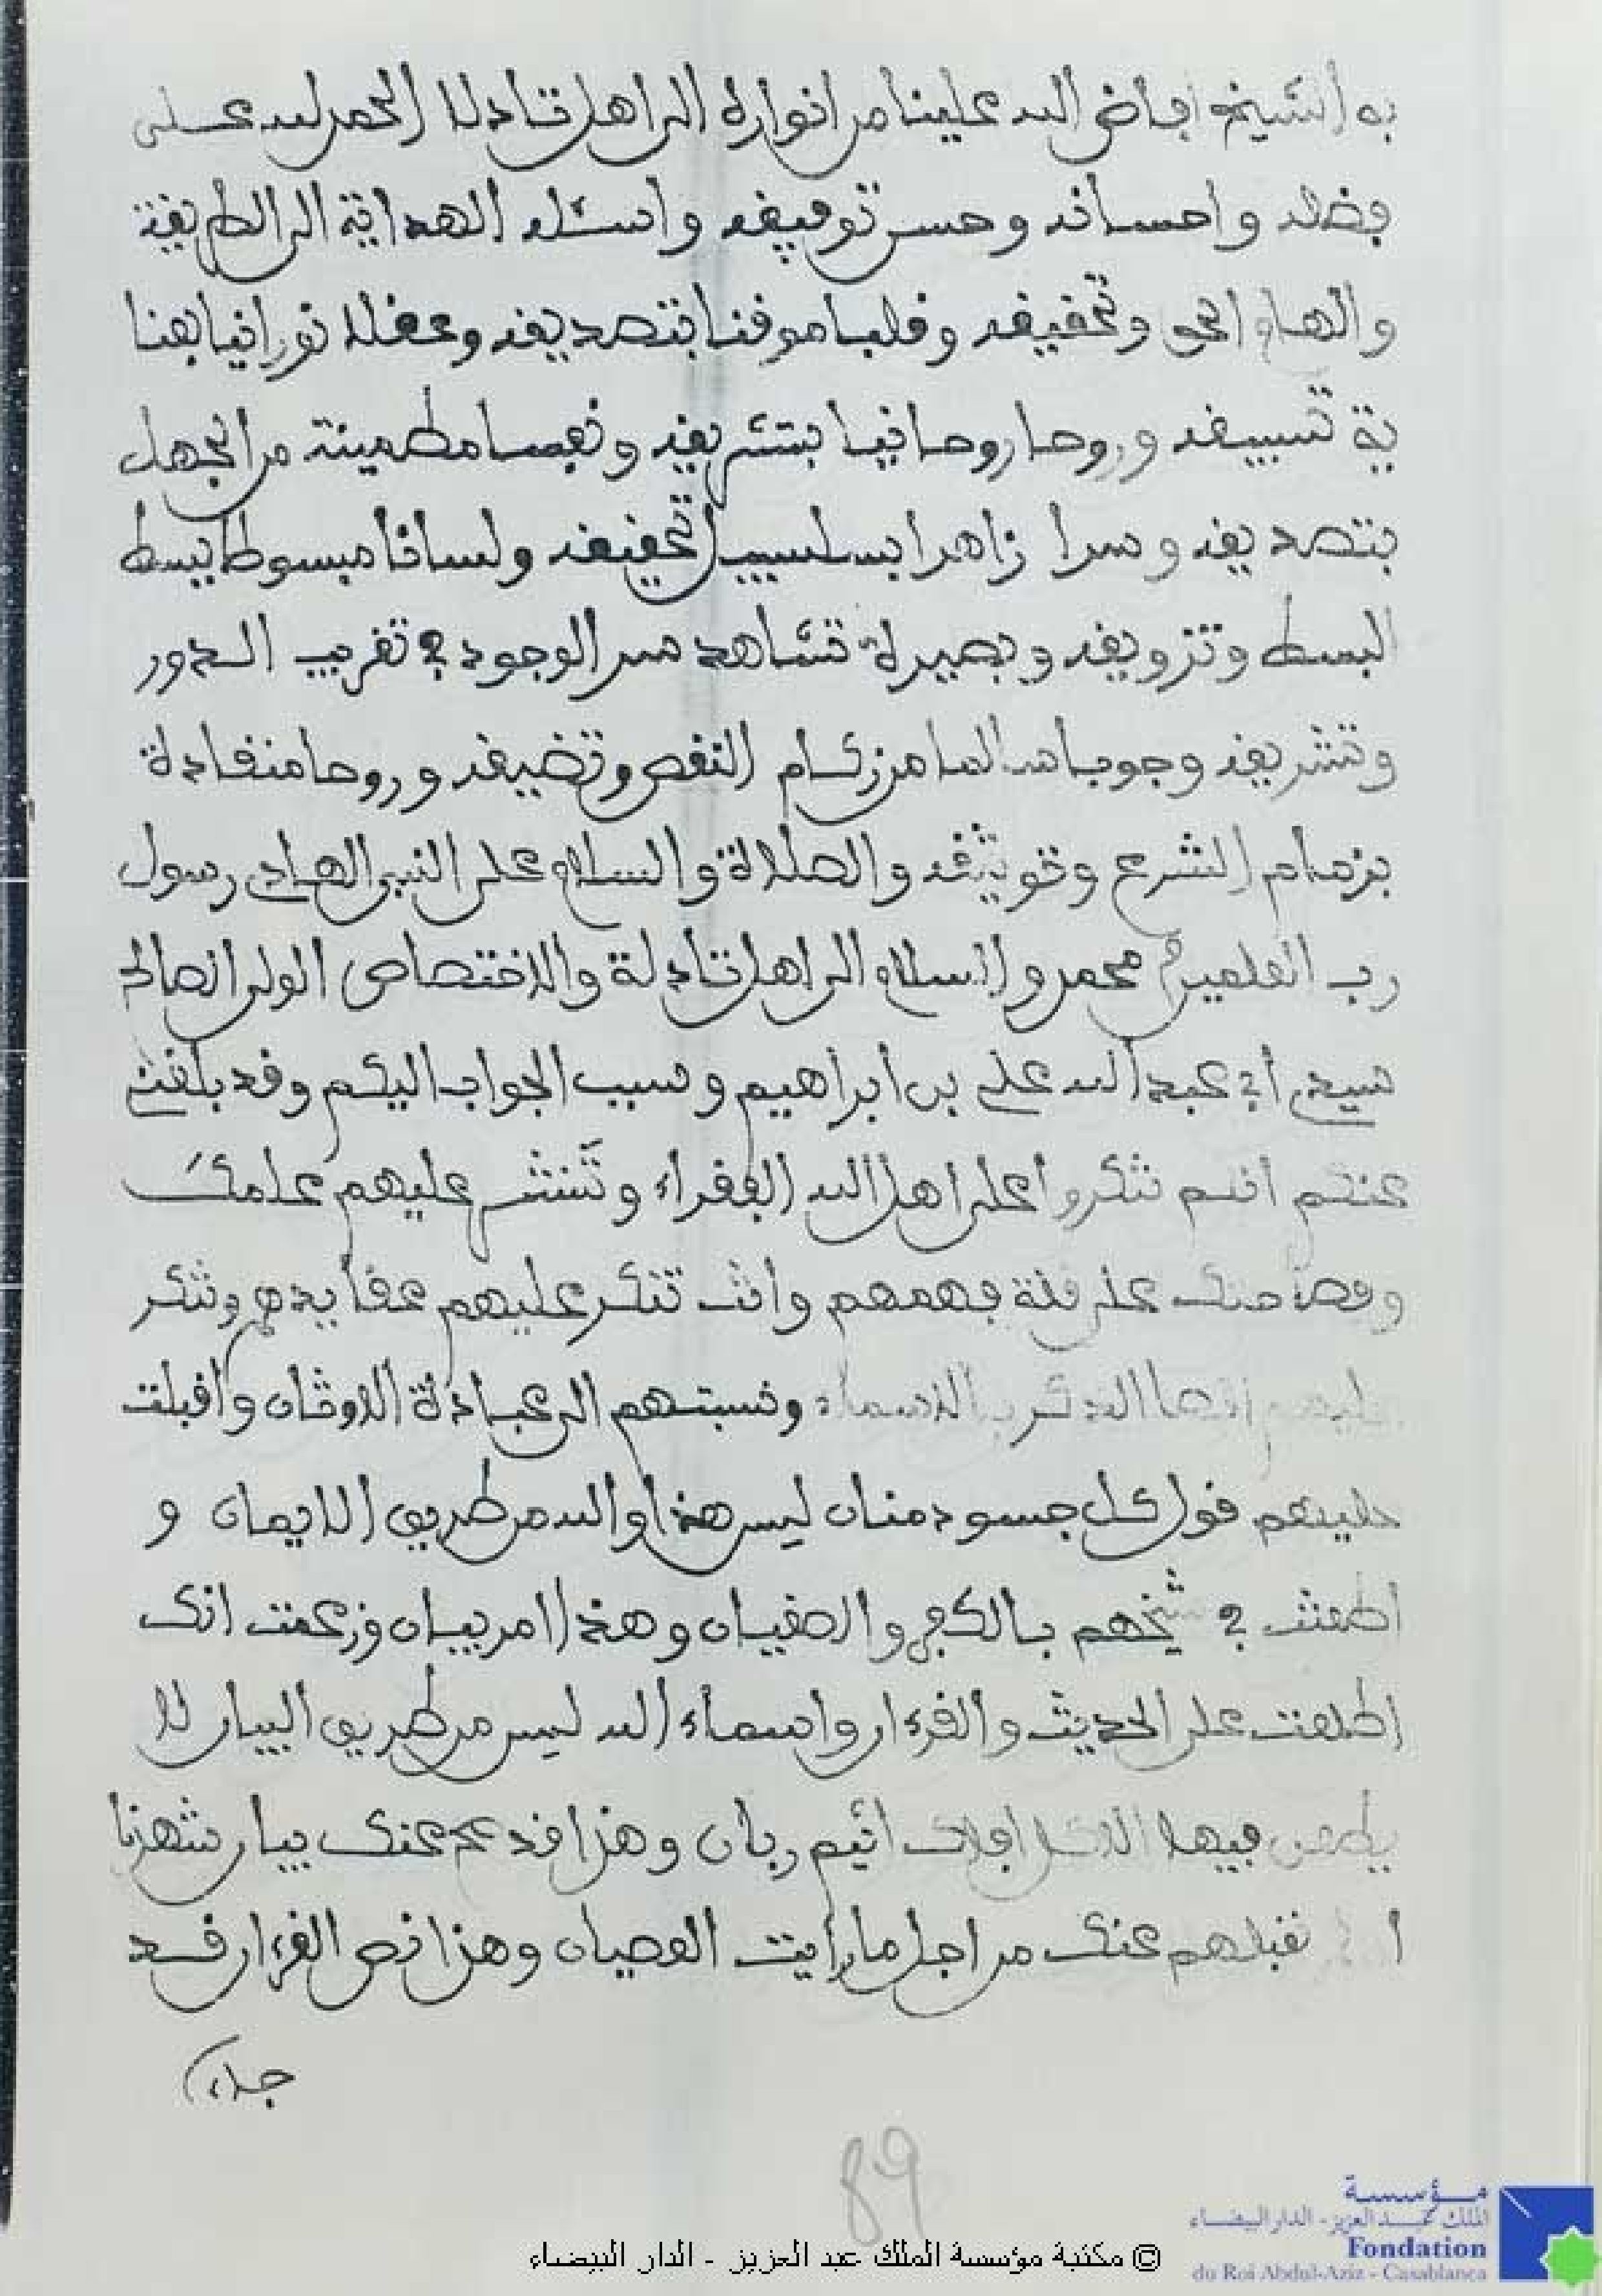 به الشيخ افاض الله علينا من انواره الى اهل تادلا الحمد لله على
فضله و احسانه و حسن توفيقه و اسئله الهداية الى الطريقة
والهام الحق وتحقيقه وقلبا موقنا بتصديقه وعقلا نورانيا بعنا
ية تسبيقه وروحا روحانيا بتشريفه ونفسا مطمينة من الجهل
بتصديقه وسرا زاهرا بسلسبيل تحقيقه ولسانا مبسوطا ببسط
البسط وتزويقه وبصيرة تشاهد سر الوجود في تقريب الدور
وتشريفه وجوبا سالما من زكام النقص وتضيقه وروحا منقادة
بزمام الشرع وتوثيقه والصلاة والسلام على النبي الهادي رسول
رب العلمين محمد والسلام الى اهل تادلة والاختصاص الولى الصالح
سيدي أبي عبد الله علي بن أبراهيم وسبب الجواب اليكم وقد بلغني
عنكم انكم تنكروا على اهل الله الفقراء وتنشر عليهم علمك
وفصاحتك على قلة فهمهم وانت تنكر عليهم عقايدهم وتنكر
عليهم ايضا الذكر بالاسماء ونسبتهم الى عبادة الاوثان واقبلت
عليهم قول كل جسود منان ليس هذا والله من طريق الايمان و
اطعنت في شيخهم بالكفر والطغيان وهذا امر بيان وزعمت انك
اطلعت على الحديث والقرءان واسماء الله ليس من طريق البيان لا
يطعن فيها الا كل افاك اثيم ربان وهذا قد صح عنك ببيان شهدنا
نقبلهم عنك من اجل ما رايت العصيان وهذا نص القرءان قد
جاء
89
مؤسسة
الملك عبد العزيز - الدار البيضاء
Fondation
du Roi Abdul-Aziz - Casablanca
© مكتبة مؤسسة الملك عبد العزيز - الدار البيضاء